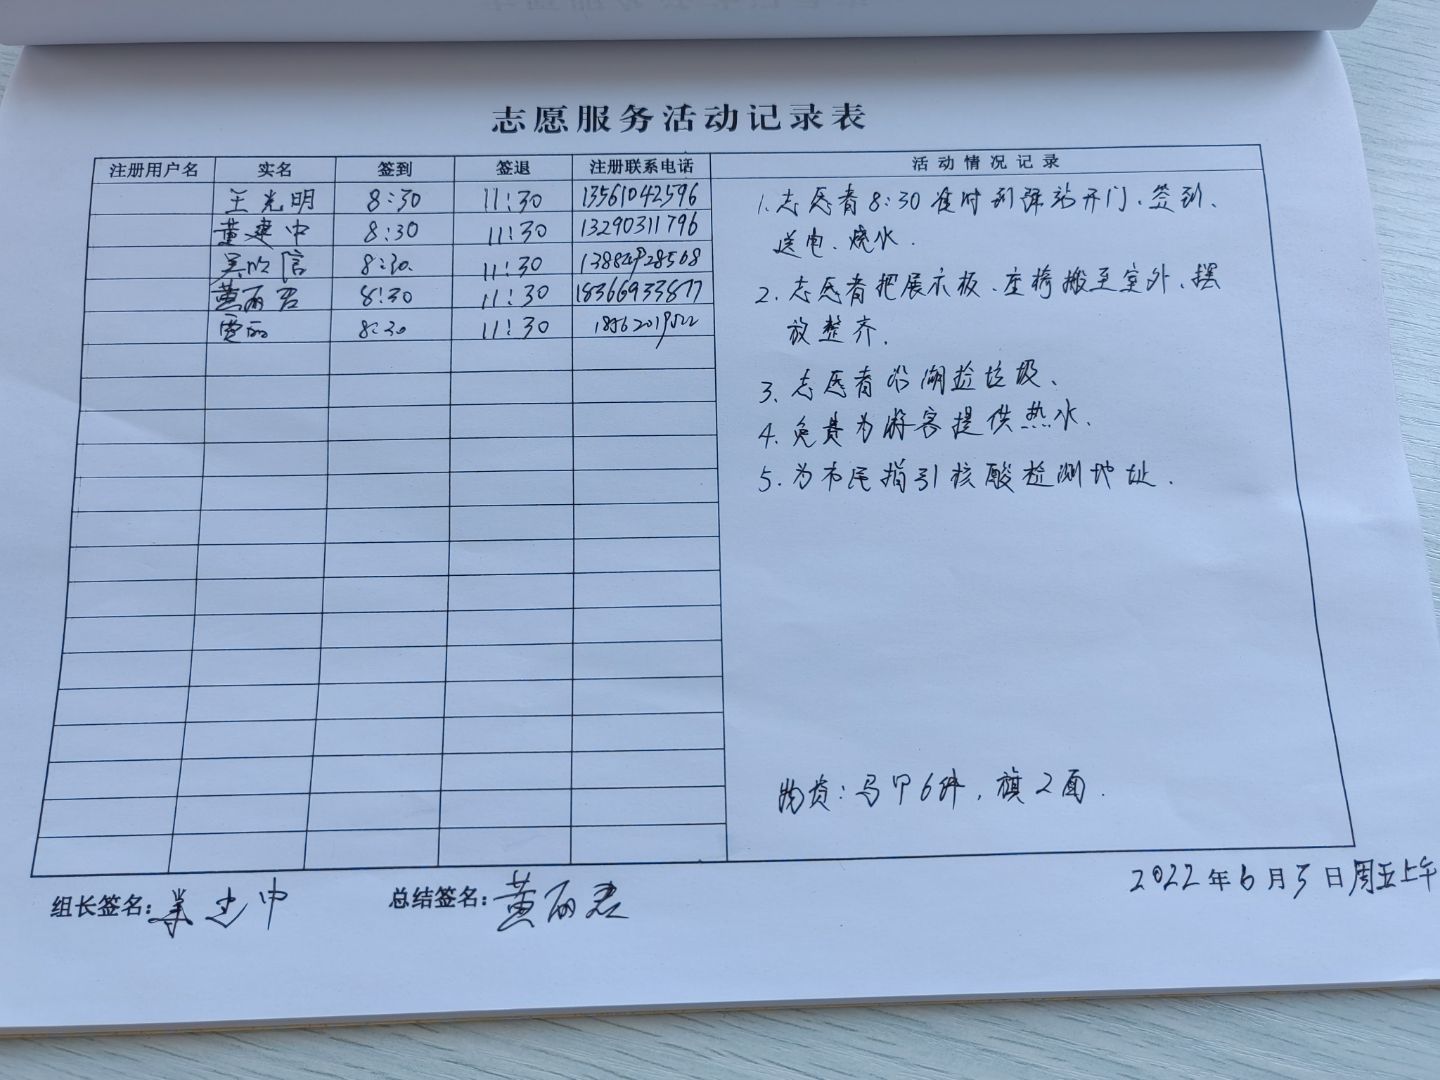 志愿服务活动记录表
注册用户名 实名 签到 签退 注册联系电话 活动情况记录
王光明 8:30 11:30 13561042596
董建中 8:30 11:30 13290311796
吴欣信 8:30. 11:30
黄丽君 8:30 11:30 18366933877
贾丽 8:30 11:30
1.志愿者8:30准时到驿站开门、签到、
送电、烧水.
2.志愿者把展示板、座椅搬至室外、摆
放整齐.
3.志愿者沿湖捡垃圾、
4.免费为游客提供热水.
5.为市民指引核酸检测地址.
物资:马甲6件,旗2面.
组长签名:董建中 总结签名:黄丽君
2022年6月3日周五上午